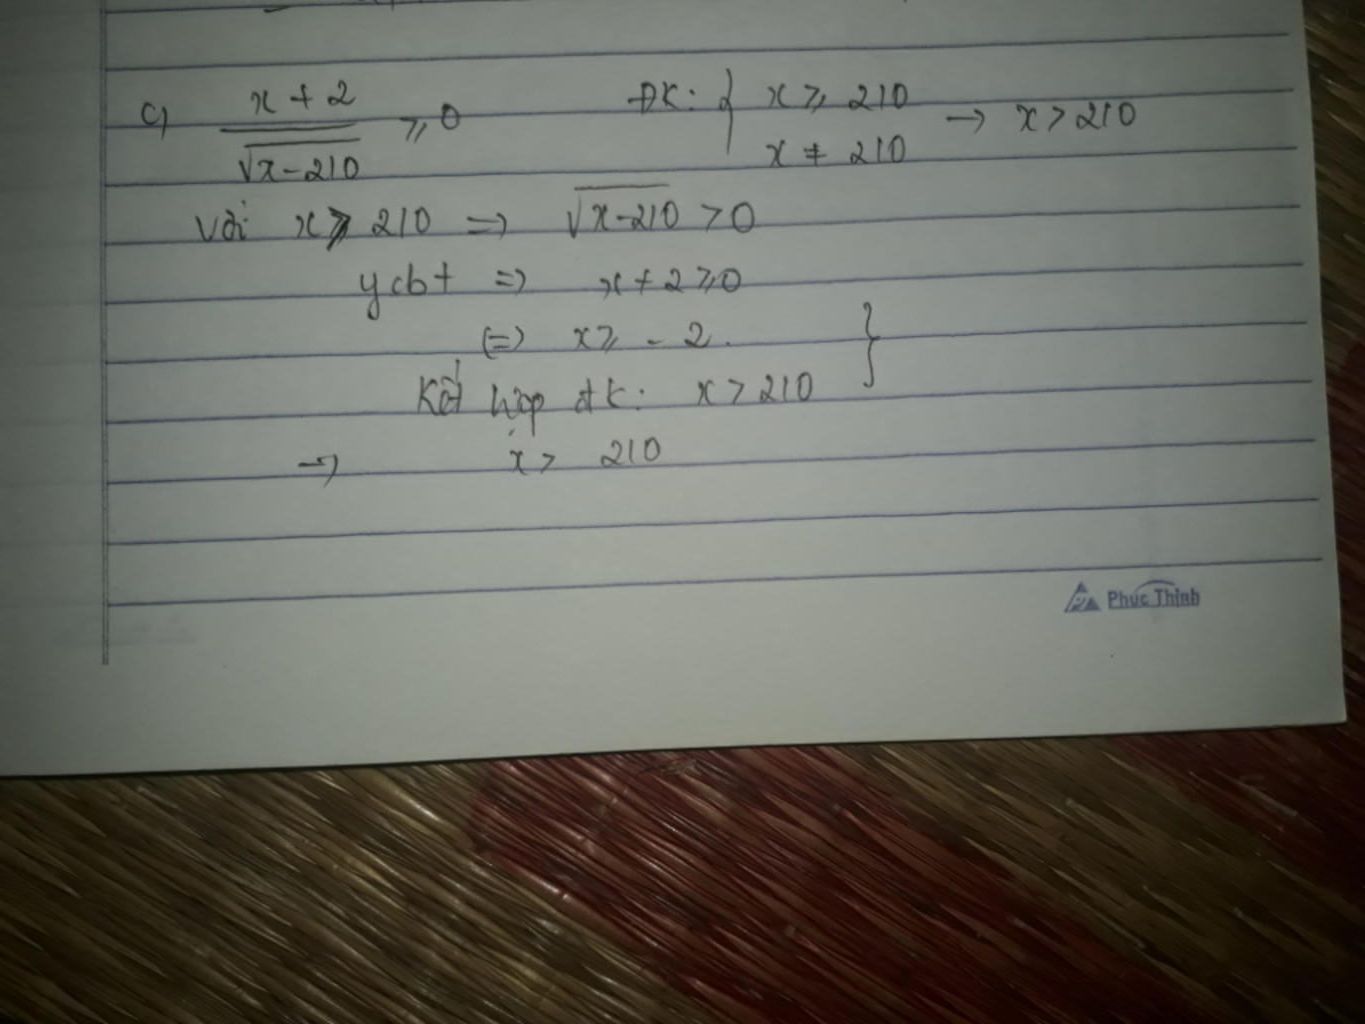 c) x + 2 / √x-210 ≥ 0 ĐK: { x ≥ 210 x ≠ 210 → x > 210
Với x > 210 => √x-210 > 0
ycbt => x + 2 ≥ 0
(=) x ≥ - 2.
Kết hợp đk: x > 210 }
=> x > 210
Phúc Thịnh